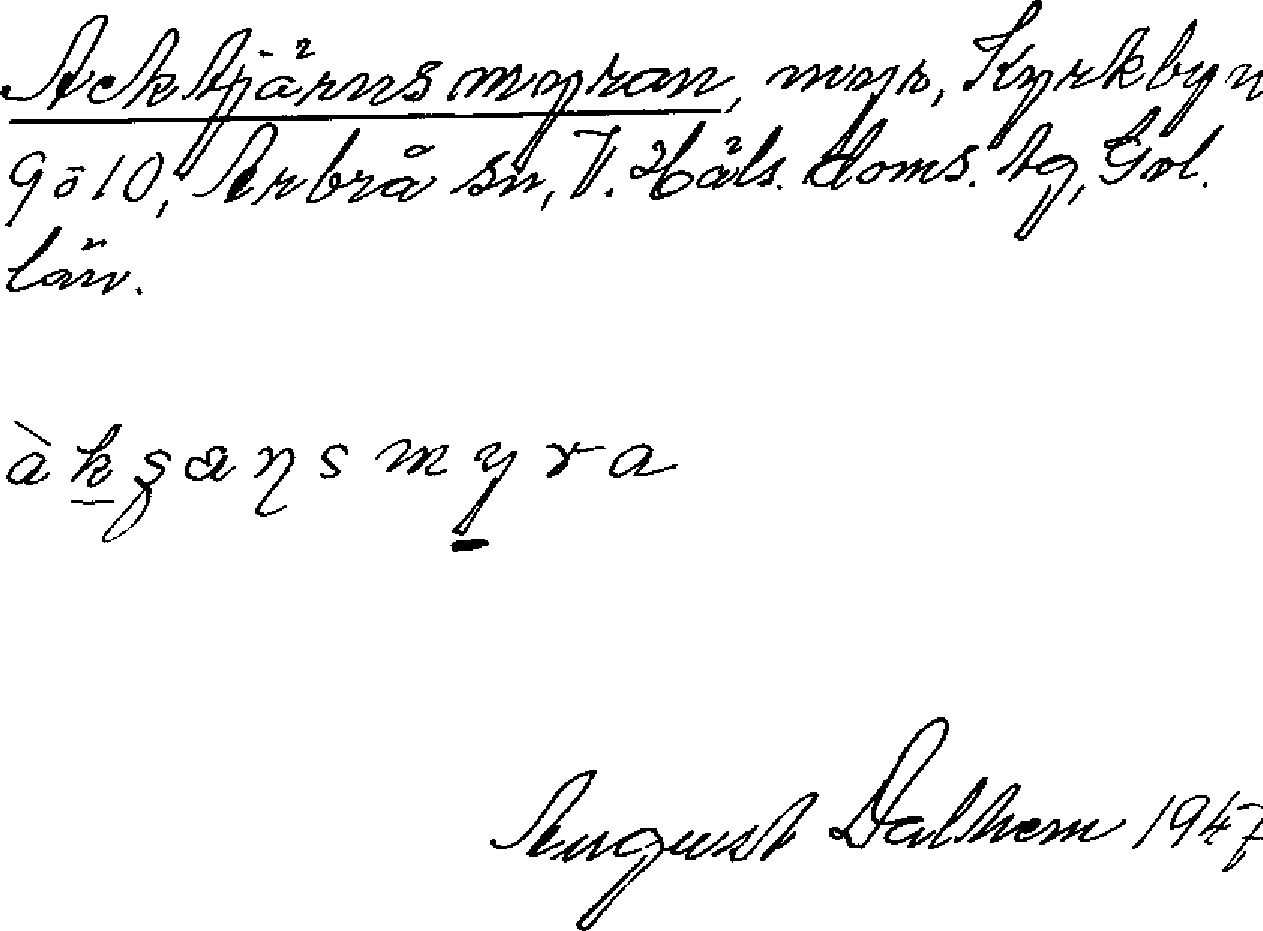 Acktjärnsmyran, myr, Kyrkbyn
9ö10, Arbrå sn, V. Häls. doms. tg, Gvl.
län.
àk̲ʂaɳsmy̲ra
August Dalhem 1947